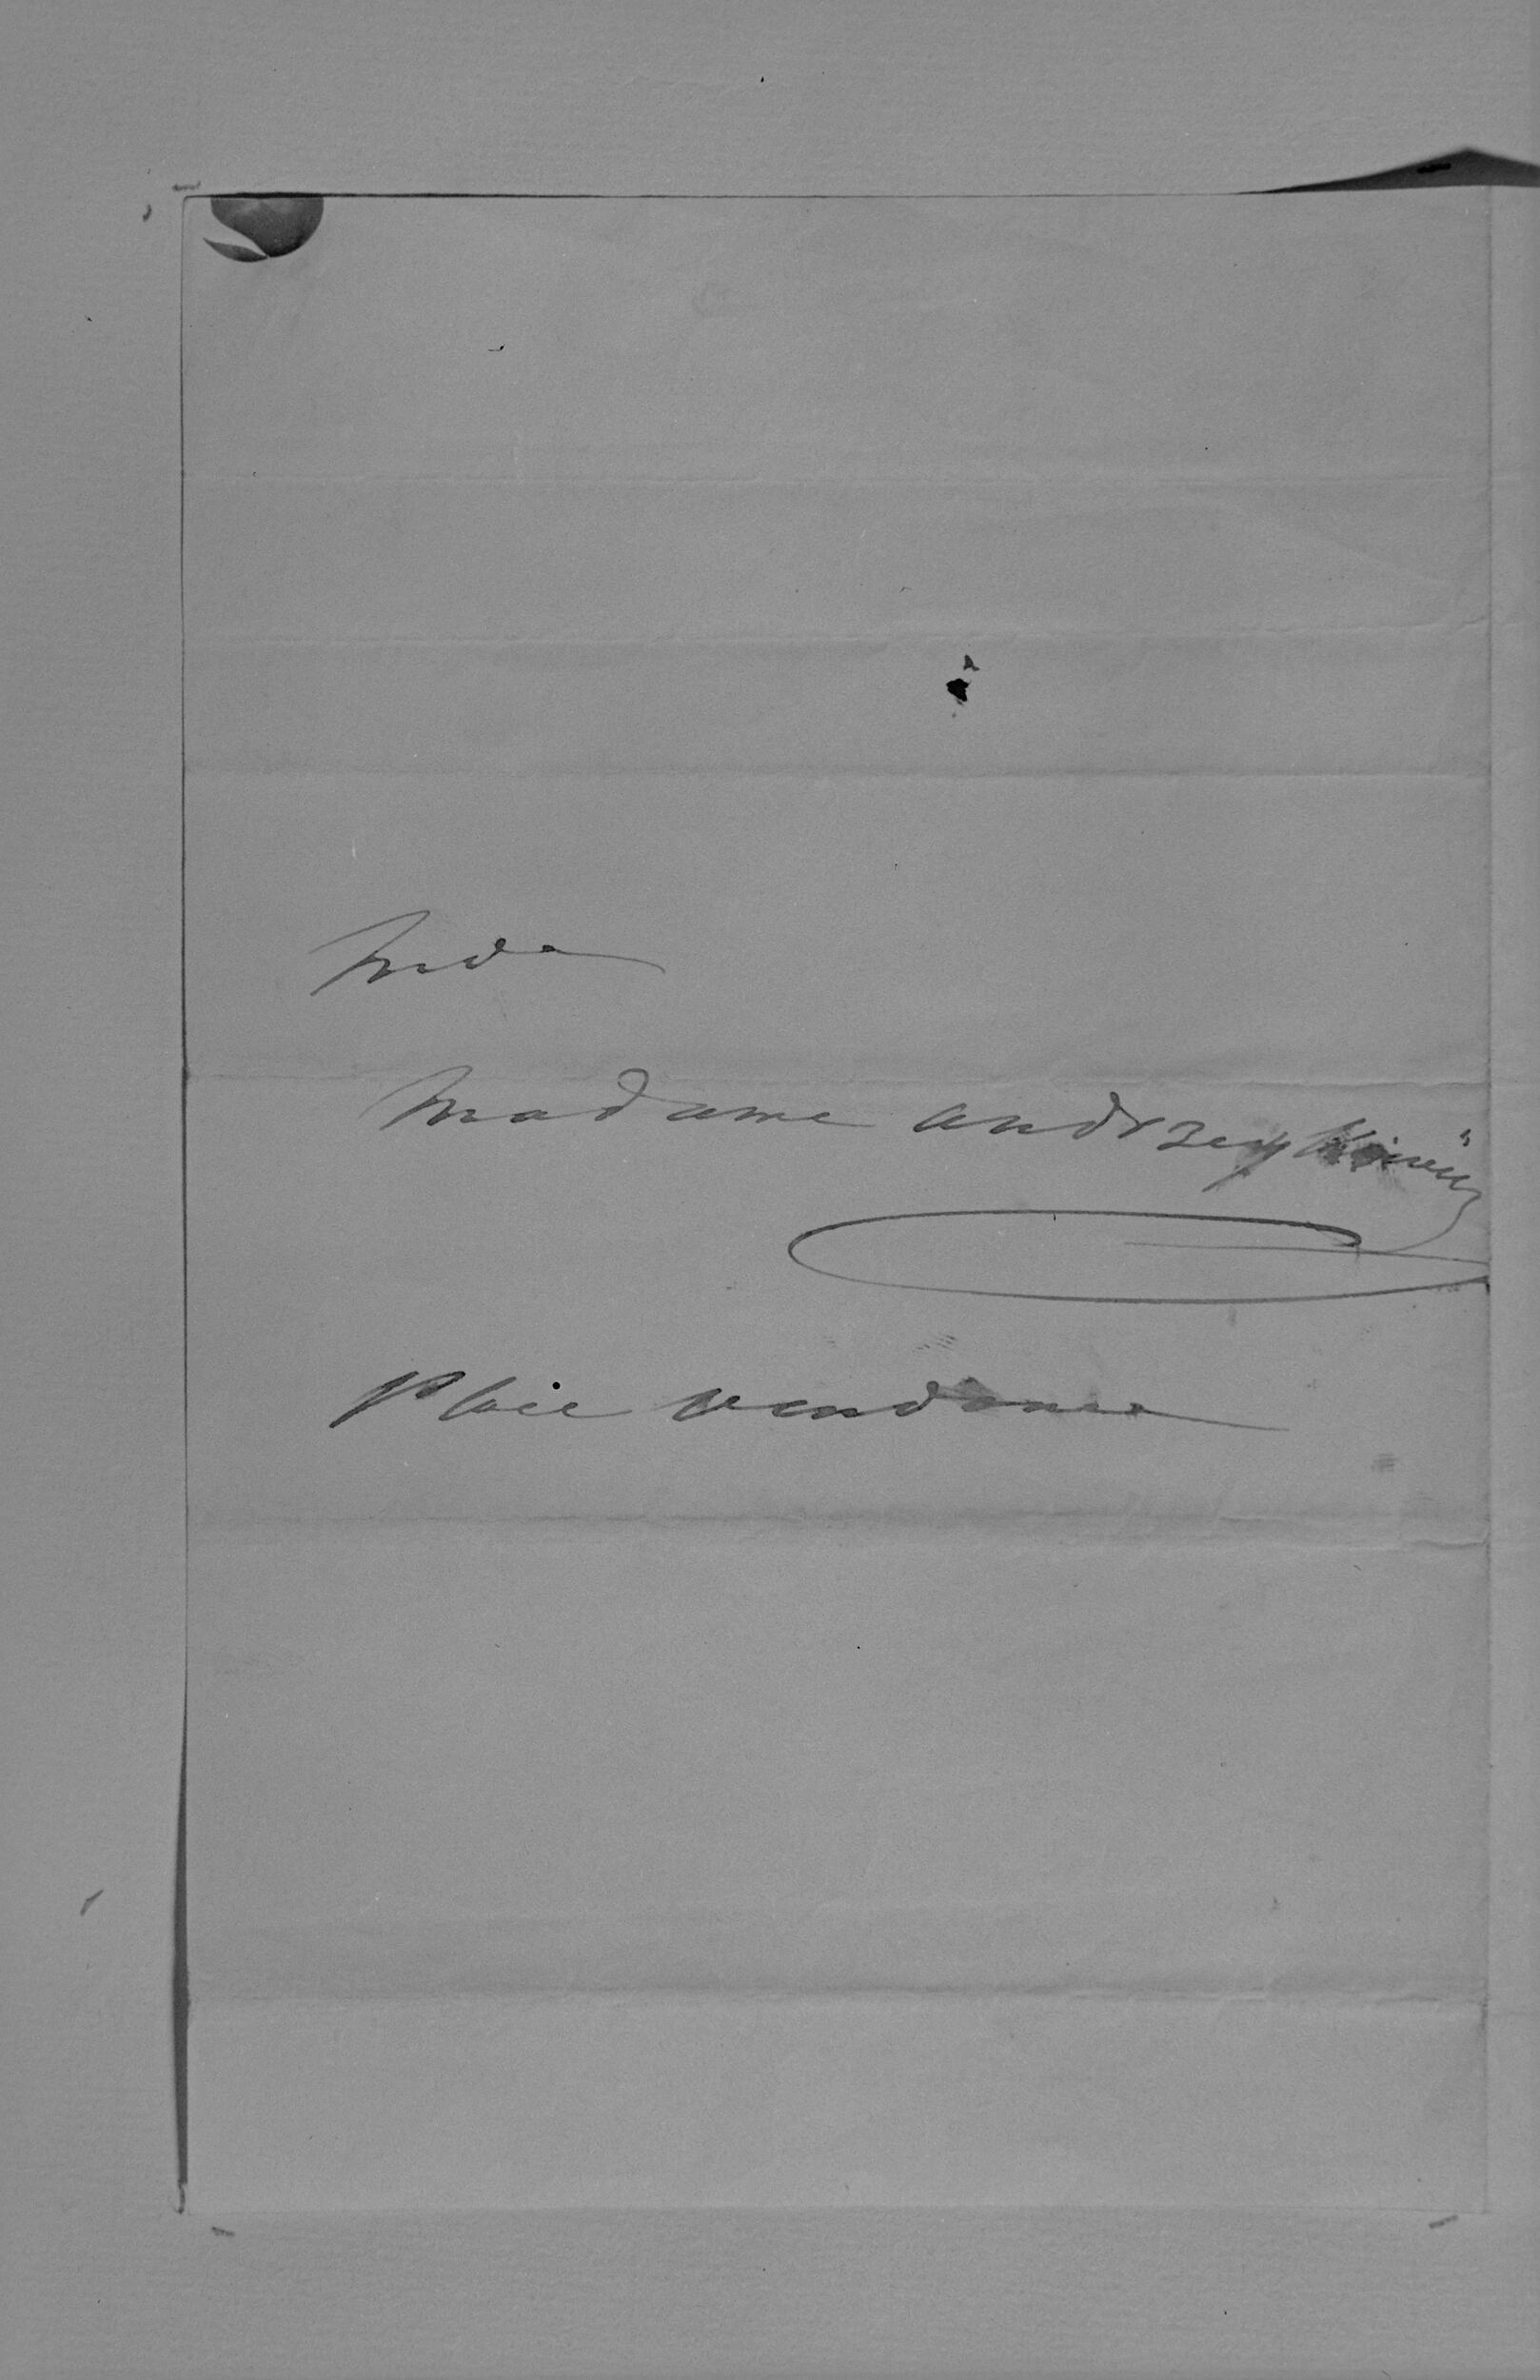 Madame andrzeykowicz
Place vendome